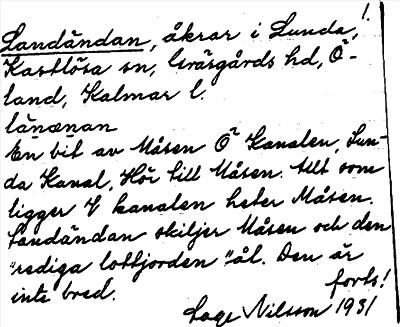 Landändan, åkrar i Lunda,!
Kastlösa sn, Gräsgårds hd, Ö-
land, Kalmar l.
länænan
En bit av Måsen Ö Kanalen, Lun-
da Kanal, Hör till Måsen. Allt som
ligger V kanalen heter Måsen.
Landändan skiljer Måsen och den
"rediga lottjorden" ål. Den är
inte bred. forts!
Lage Nilsson 1931